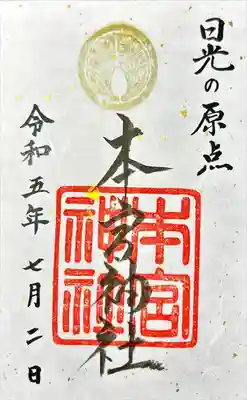 日光の原点
本宮神社
本宮
神社
令和五年 七月二日